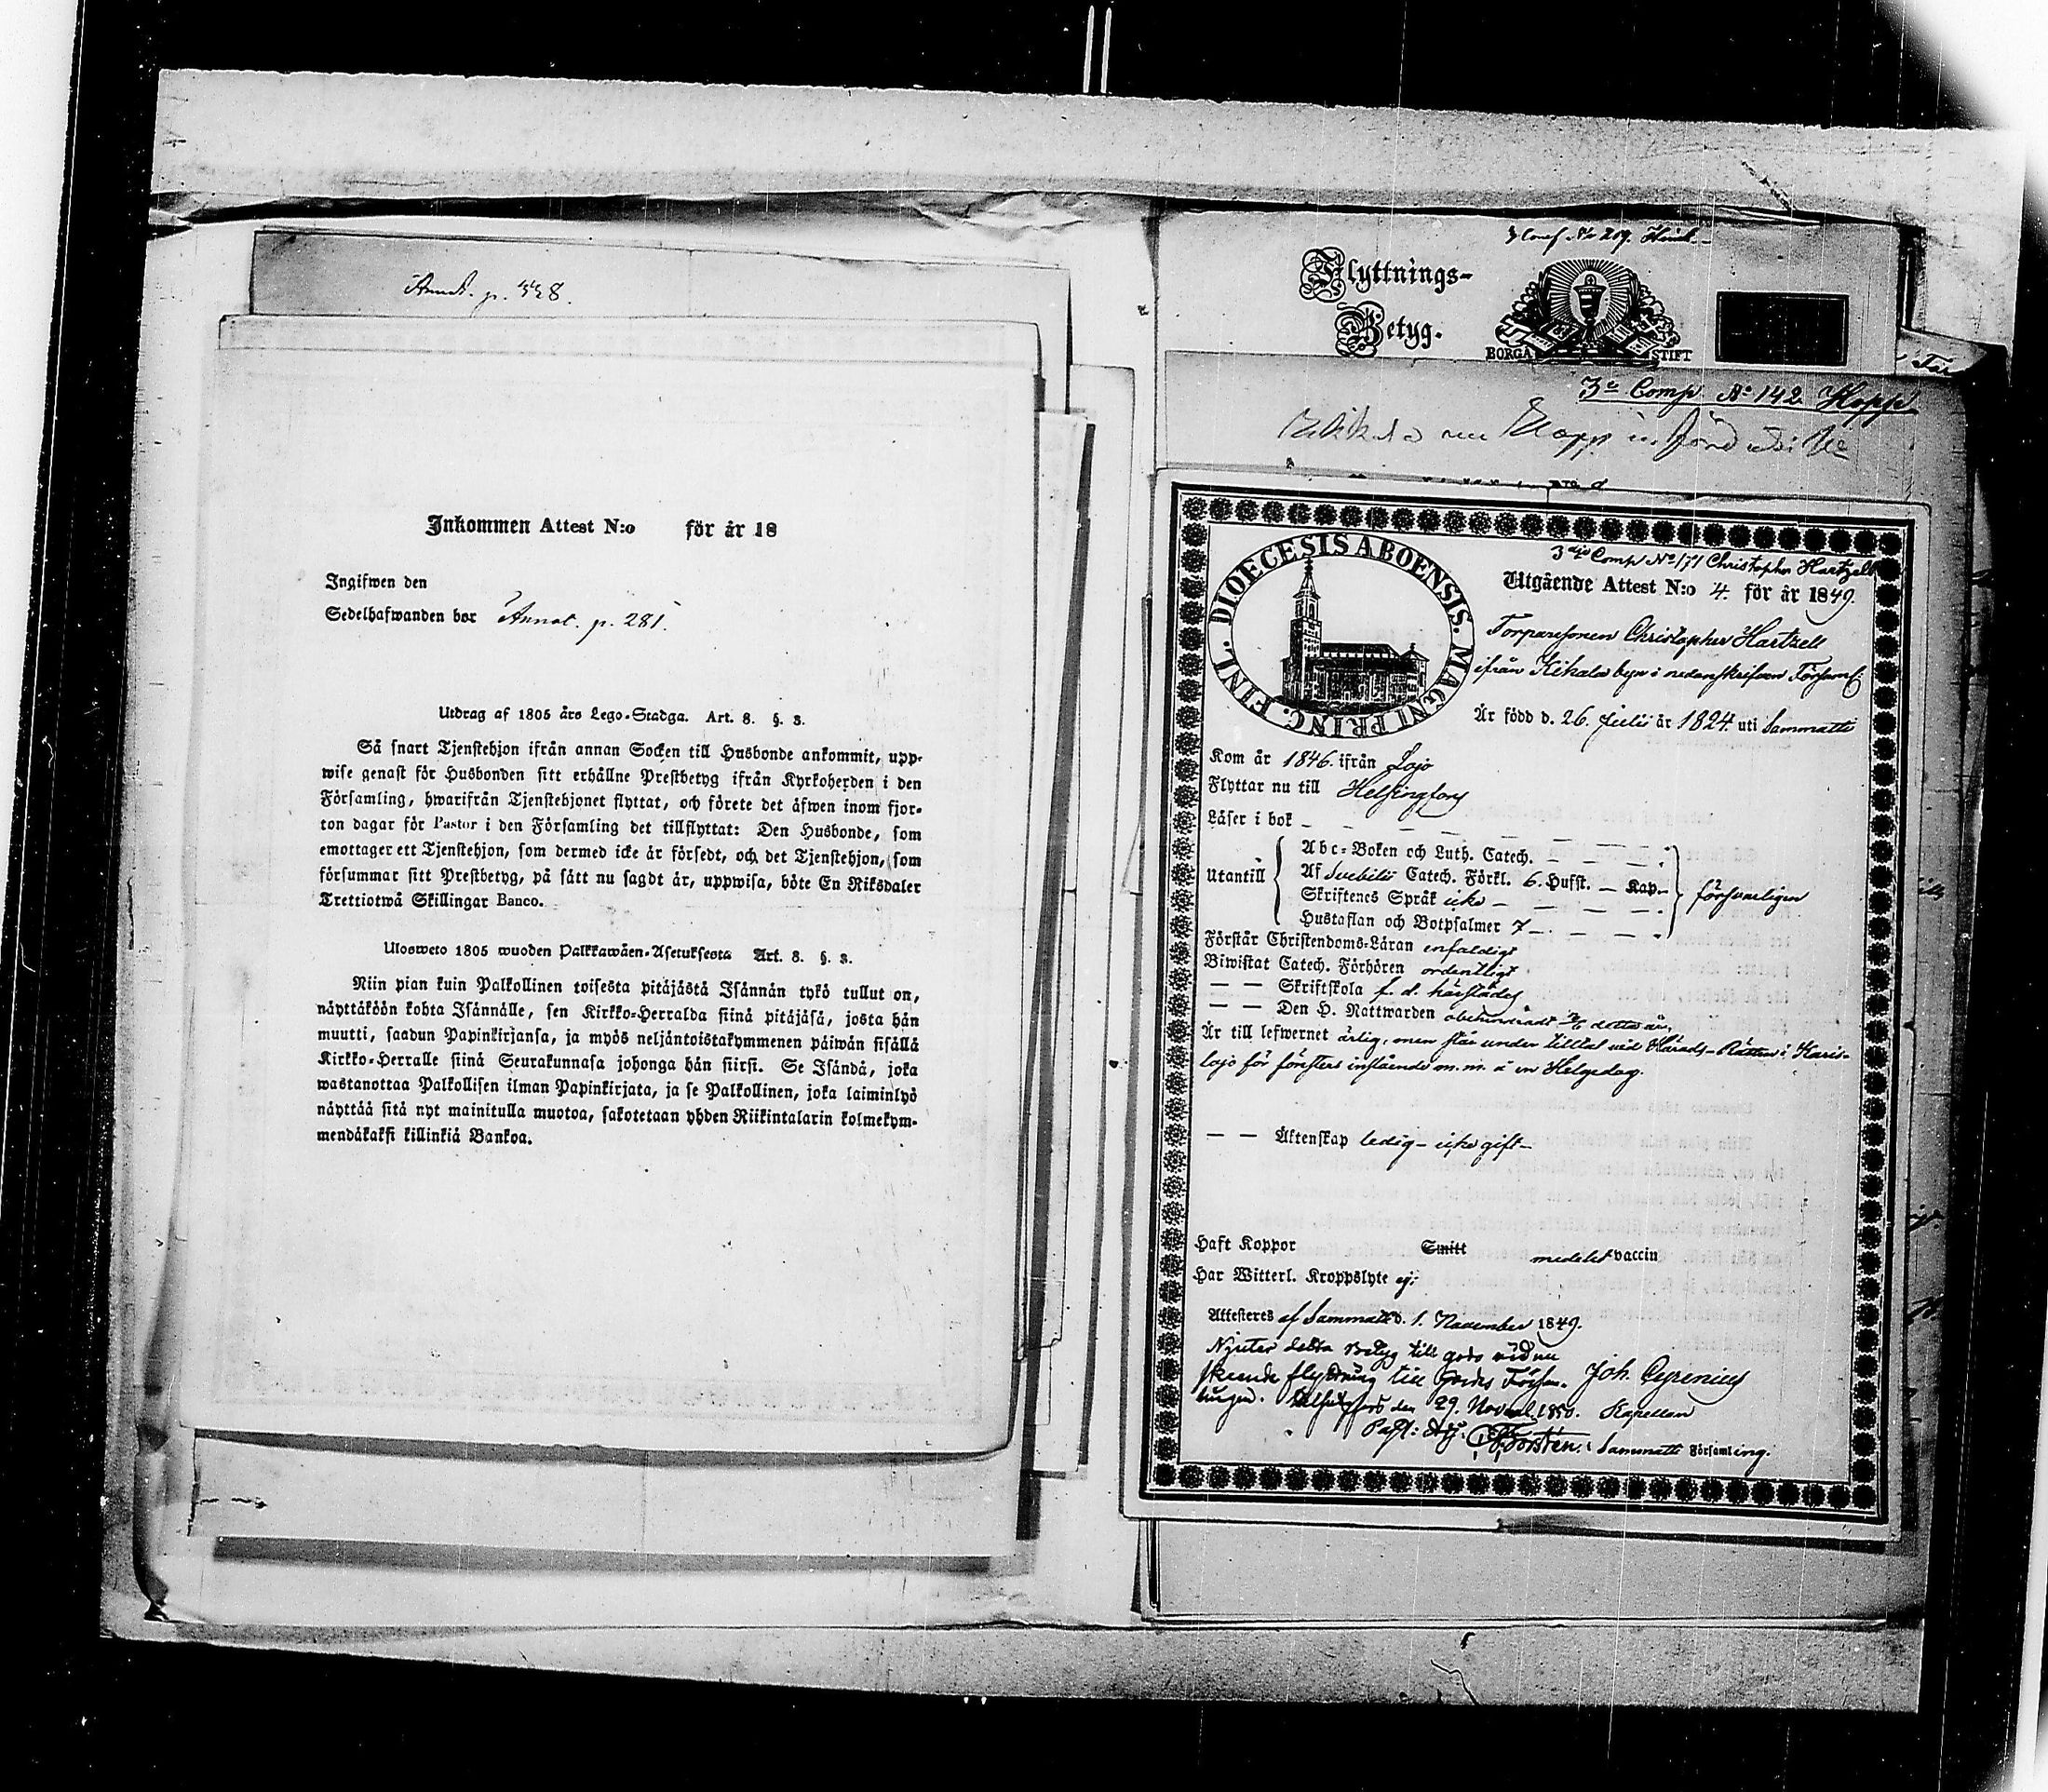 Annot. p. 338.
Inkommen Attest N:o för år 18
Ingifwen den
Sedelhafwanden bor Annot. p. 281.
Utdrag af 1805 års Lego-Stadga. Art. 8. §. 3.
Så snart Tjenstehjon ifrån annan Socken till Husbonde ankommit, upp-
wise genast för Husbonden sitt erhållne Prestbetyg ifrån Kyrkoherden i den
Församling, hwarifrån Tjenstehjonet flyttat, och förete det äfwen inom fjor-
ton dagar för Pastor i den Församling det tillflyttat: Den Husbonde, som
emottager ett Tjenstehjon, som dermed icke är försedt, och det Tjenstehjon, som
försummar sitt Prestbetyg, på sätt nu sagdt är, uppwisa, böte En Riksdaler
Trettiotwå Skillingar Banco.
Ulosweto 1805 wuoden Palkkawäen-Asetuksesta Art. 8. §. 3.
Niin pian kuin Palkollinen toisesta pitäjästä Isännän tykö tullut on,
näyttäköön kohta Isännälle, sen Kirkko-Herralda siinä pitäjäsä, josta hän
muutti, saadun Papinkirjansa, ja myös neljäntoistakymmenen päiwän sisällä
Kirkko-Herralle siinä Seurakunnasa johonga hän siirsi. Se Isändä, joka
wastanottaa Palkollisen ilman Papinkirjata, ja se Palkollinen, joka laiminlyö
näyttää sitä nyt mainitulla muotoa, sakotetaan yhden Riikintalarin kolmekym-
mendäkaksi killinkiä Bankoa.
3 Comp No 209.
Flyttnings-
Betyg.
BORGÅ STIFT
3e Comp No 142 Hopp
DIOECESIS ABOENSIS. MAGNI PRINC. FINL.
3dje Comp No 171 Christopher Hartzell
Utgående Attest N:o 4. för år 1849.
Torparesonen Christopher Hartzell
ifrån Kihala byn i nedanskrifven Församl:
Är född d. 26 Julii år 1824 uti Sammatti
Kom år 1846. ifrån Lojo
Flyttar nu till Helsingfors
Läser i bok
Utantill
Abc-Boken och Luth. Catech.
Af Svebilii Catech. Förkl. 6. Hufst. — Kap.
Skriftenes Språk icke
Hustaflan och Botpsalmer 7
försvarligen
Förstår Christendoms-Läran enfaldigt
Biwistat Catech. Förhören ordentligt
— — Skriftskola f. d. härstädes
— — Den H. Nattwarden obehindradt detta år,
Är till lefwernet ärlig, men står under tilltal vid Härads-Rätten i Karis-
lojo för fönsters inslående m. m. å en Helgedag.
— — Äktenskap ledig – icke gift –
Haft Koppor Smitt medelst vaccin
Har Witterl. Kroppslyte ej.
Attesteres af Sammatti d. 1. November 1849.
Njuter detta Betyg till godo vid nu
skeende flyttning till Församlingen. Joh. Cyrenius
Helsingfors den 29. Novemb. 1850. Kapellan
Past: Adj. Forstén. i Sammatti Församling.